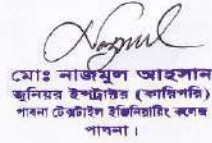 মোঃ নাজমুল আহসান
জুনিয়র ইন্সট্রাক্টর (কারিগরি)
পাবনা টেক্সটাইল ইঞ্জিনিয়ারিং কলেজ
পাবনা।